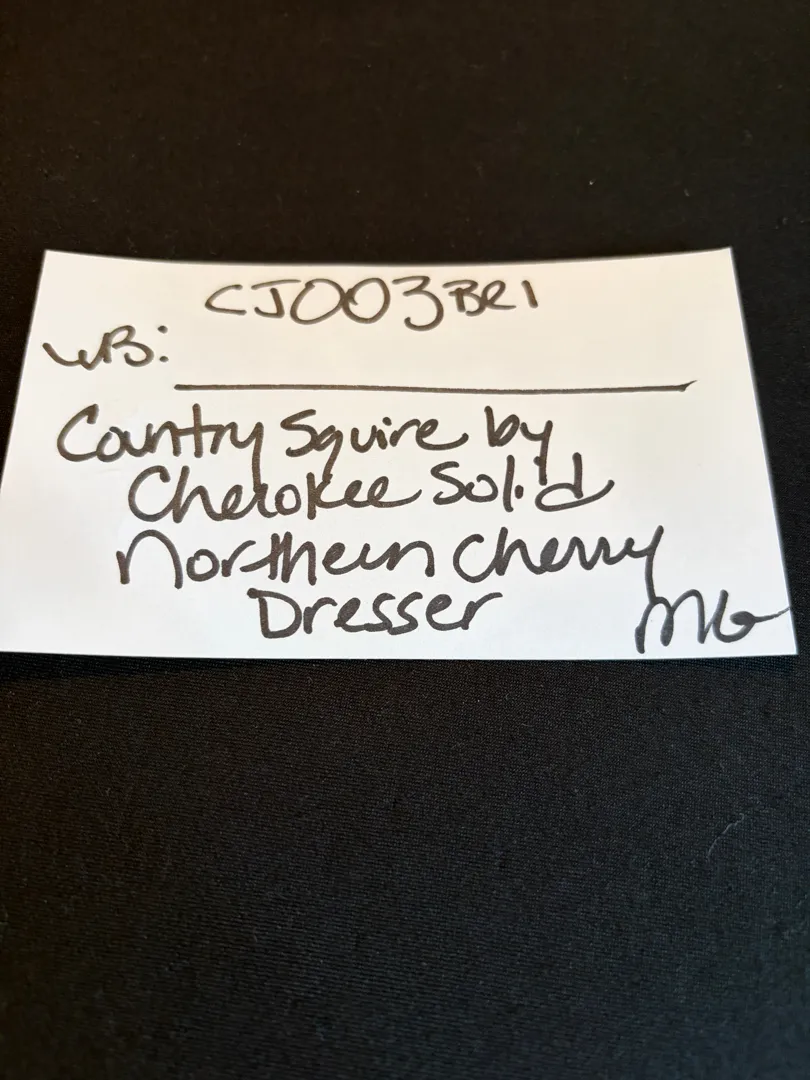 CJ003BR1
WB:
Country Squire by
Cherokee Solid
Northern Cherry
Dresser
MG